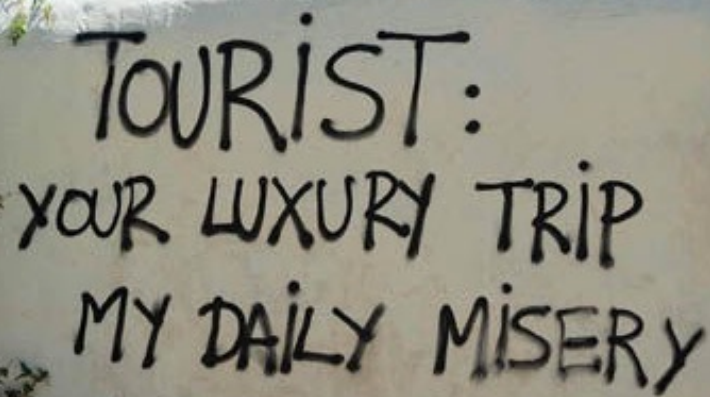 TOURiST:
YOUR LUXURY TRiP
MY DAiLY MiSERY